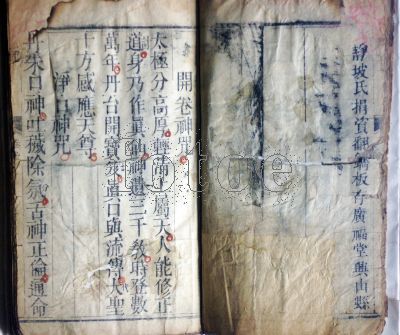 靜坡氏捐資觀
板存廣福堂興山縣
開卷神咒
太極分高厚輕清上屬天人能修正
道身乃作真仙神還三千教府登數
萬年丹台開寶笈金口與流傳大聖
十方感應天尊
淨口神咒
丹朱口神吐穢除氛舌神正倫通命